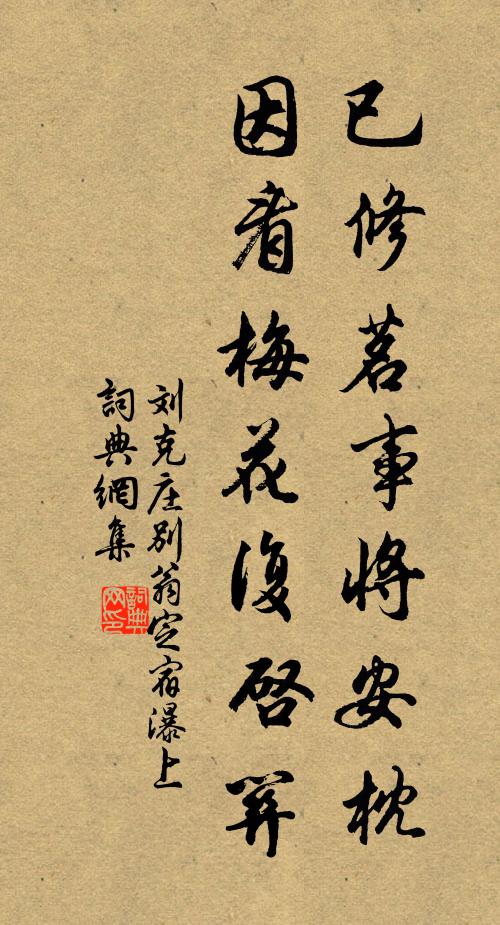 已修茗事将安枕
因看梅花復啓關
刘克庄別翁定宿瀑上
詞典網集
詞典网印